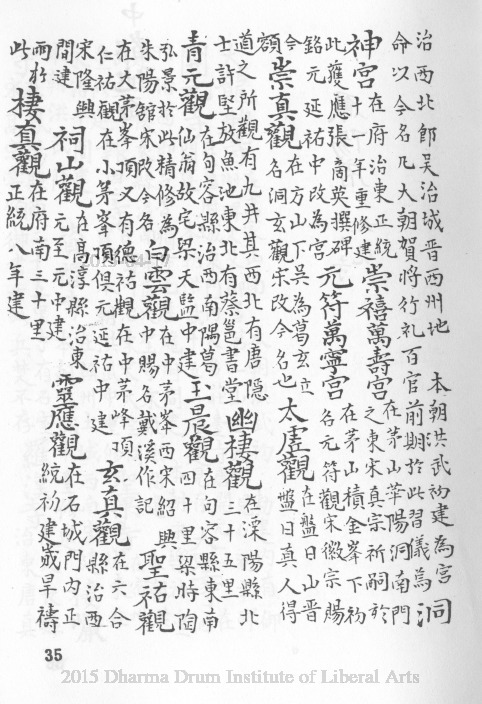 治西北郎吴治城晋西州地　本朝洪武初建為宮
命以今名凡大朝賀將行礼百官前期於此習儀焉　洞
神宮　在府治東正統十一年重修建　崇禧萬壽宮　在茅山華陽洞南門之東宋真宗祈嗣於
此獲應張商英撰碑銘元延祐中改為宮　元符萬寧宮　在茅山積金峯下初名元符觀宋徽宗賜
今額　崇真觀　在方山下吴為葛玄立名洞玄觀宋改今名也　太虚觀　在盤日山晋盤日真人得
道之所觀有九井其西北有唐隱士許堅放魚池東北有蔡邕書堂　幽棲觀　在溧陽縣北三十五里
青元觀　在句容縣治西南隅葛仙翁故宅梁天監中建　玉晨觀　在句容縣東南四十里梁時陶
弘景於此精修為朱陽館宋改今名　白雲觀　在中茅峯西宋紹興中賜名戴溪作記　聖祐觀
在大茅峯頂又有德祐觀在中茅峰頂仁祐觀在小茅峯頂俱元延祐中建　玄真觀　在六合縣治西
宋隆興間建　祠山觀　在高淳縣治東元至元中建　靈應觀　在石城門内正統初建歲旱禱
雨於此　棲真觀　在府南三十里正統八年建
35
2015 Dharma Drum Institute of Liberal Arts